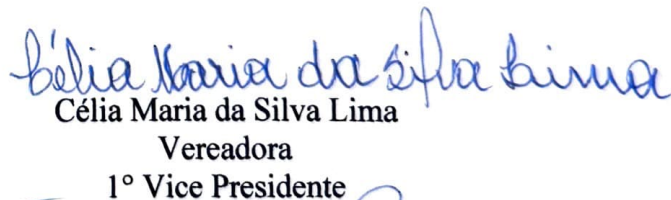 Célia Maria da Silva Lima
Célia Maria da Silva Lima
Vereadora
1° Vice Presidente